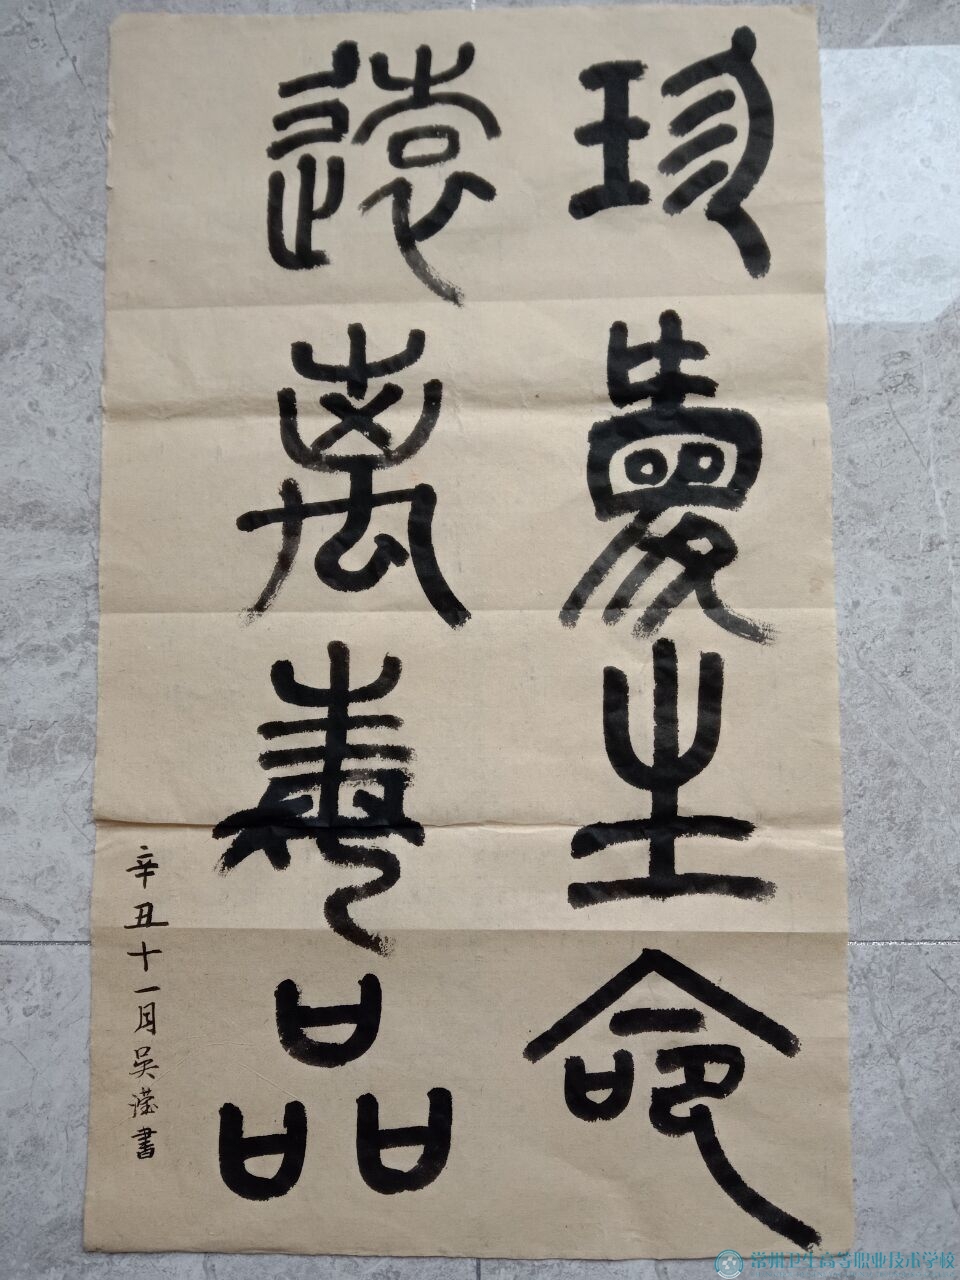 珍愛生命
遠離毒品
辛丑十一月吴滢書
常州卫生高等职业技术学校